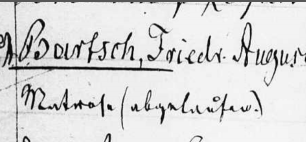 Bartsch, Friedr. August
Matrose (abgelaufen.)